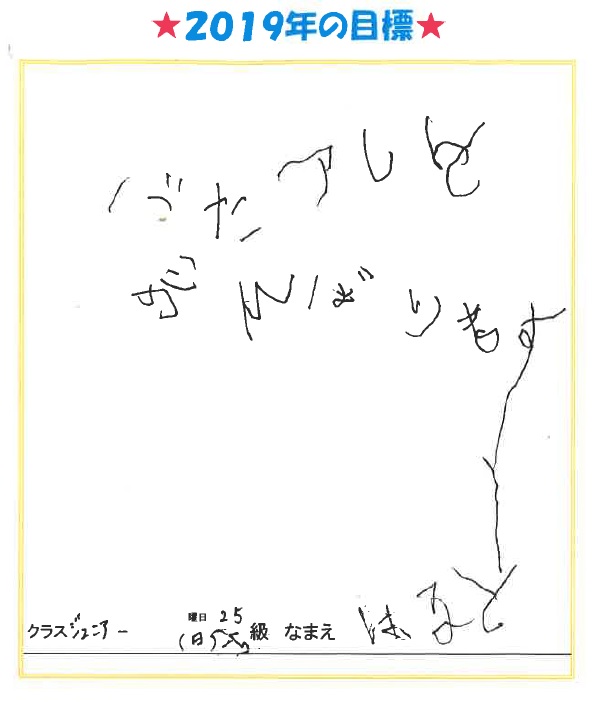 ★2019年の目標★
ばたアしを
がんばります
クラス ジュニアー 曜日 (日) 25 級 なまえ はると